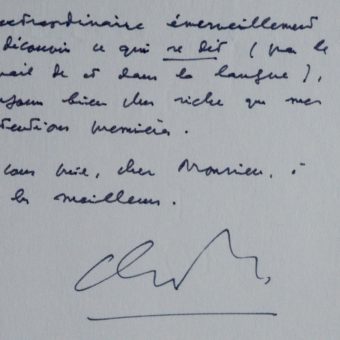 extraordinaire émerveillement
découvrir ce qui se dit (par le
travail de et dans la langue),
bien plus riche que mes
intentions premières.
vous prie, cher Monsieur, à
les meilleurs.